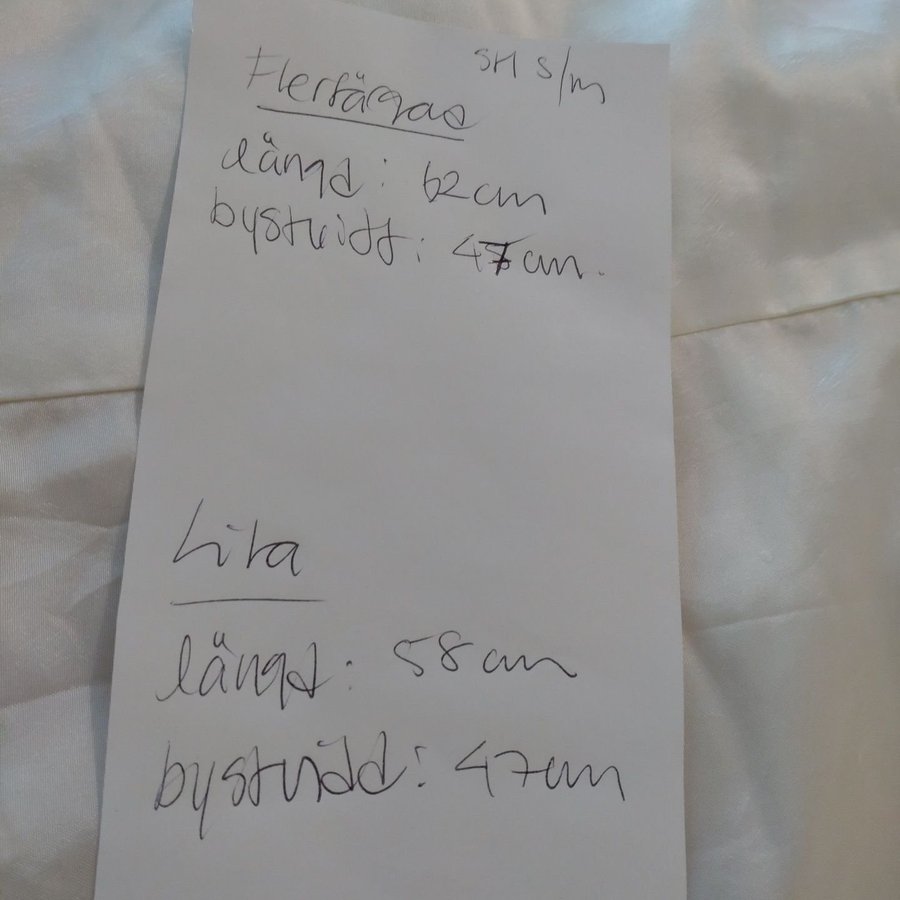 Flerfärgad
SH S/M
längd: 62cm
bystvidd: 47cm.
Lila
längd: 58cm
bystvidd: 47cm